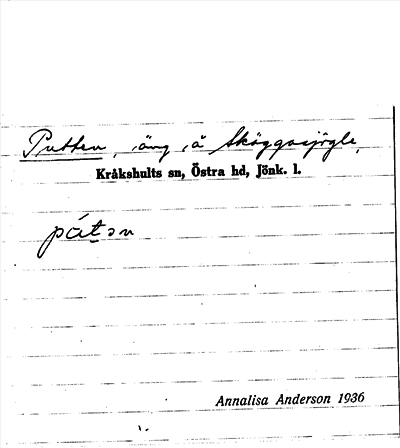 Putten, äng, å Skäggesjögle,
Kråkshults sn, Östra hd, Jönk. l.
pátən
Annalisa Anderson 1936